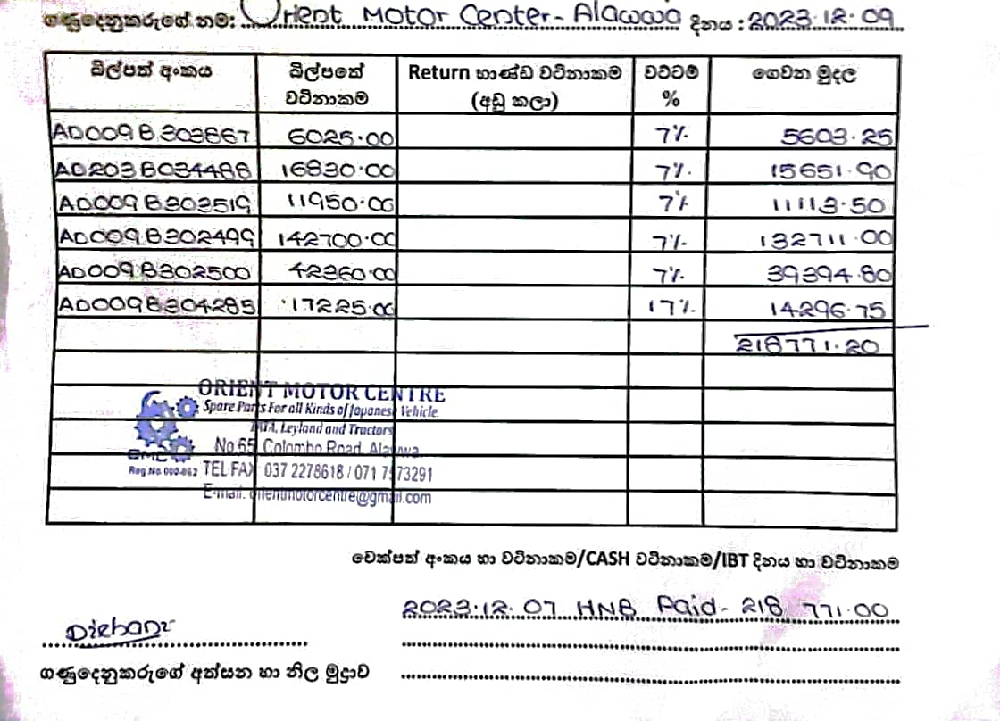 ගණුදෙනුකරුගේ නම: Orient Motor Center - Alawwa දිනය : 2023.12.09
බිල්පත් අංකය බිල්පතේ වටිනාකම Return භාණ්ඩ වටිනාකම (අඩු කලා) වට්ටම් % ගෙවන මුදල
AD009B303867 6025.00 7% 5603.25
AD203B034488 16830.00 7% 15651.90
AD009B303519 11950.00 7% 11113.50
AD009B302499 142700.00 7% 132711.00
AD009B302500 42360.00 7% 39394.80
AD009B304285 17225.00 17% 14296.75
218771.20
ORIENT MOTOR CENTRE
Spare Parts For all Kinds of Japanese Vehicle
TATA, Leyland and Tractors
No.55, Colombo Road, Alawwa.
OMC
TEL FAX 037 2278618 / 071 7573291
E-mail: orientmotorcentre@gmail.com
චෙක්පත් අංකය හා වටිනාකම/CASH වටිනාකම/IBT දිනය හා වටිනාකම
2023.12.07 HNB Paid - 218 771.00
ගණුදෙනුකරුගේ අත්සන හා නිල මුද්‍රාව